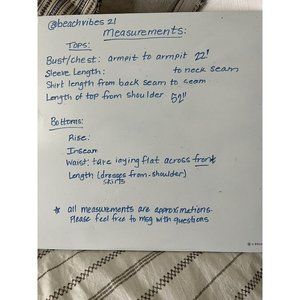 @beachvibes21
Measurements:
Tops:
Bust/chest: armpit to armpit 22"
Sleeve Length: to neck seam
Shirt length from back seam to seam
Length of top from shoulder 52"
Bottoms:
Rise:
Inseam
Waist: take laying flat across front
Length (dresses from shoulder)
skirts
* all measurements are approximations.
Please feel free to msg with questions